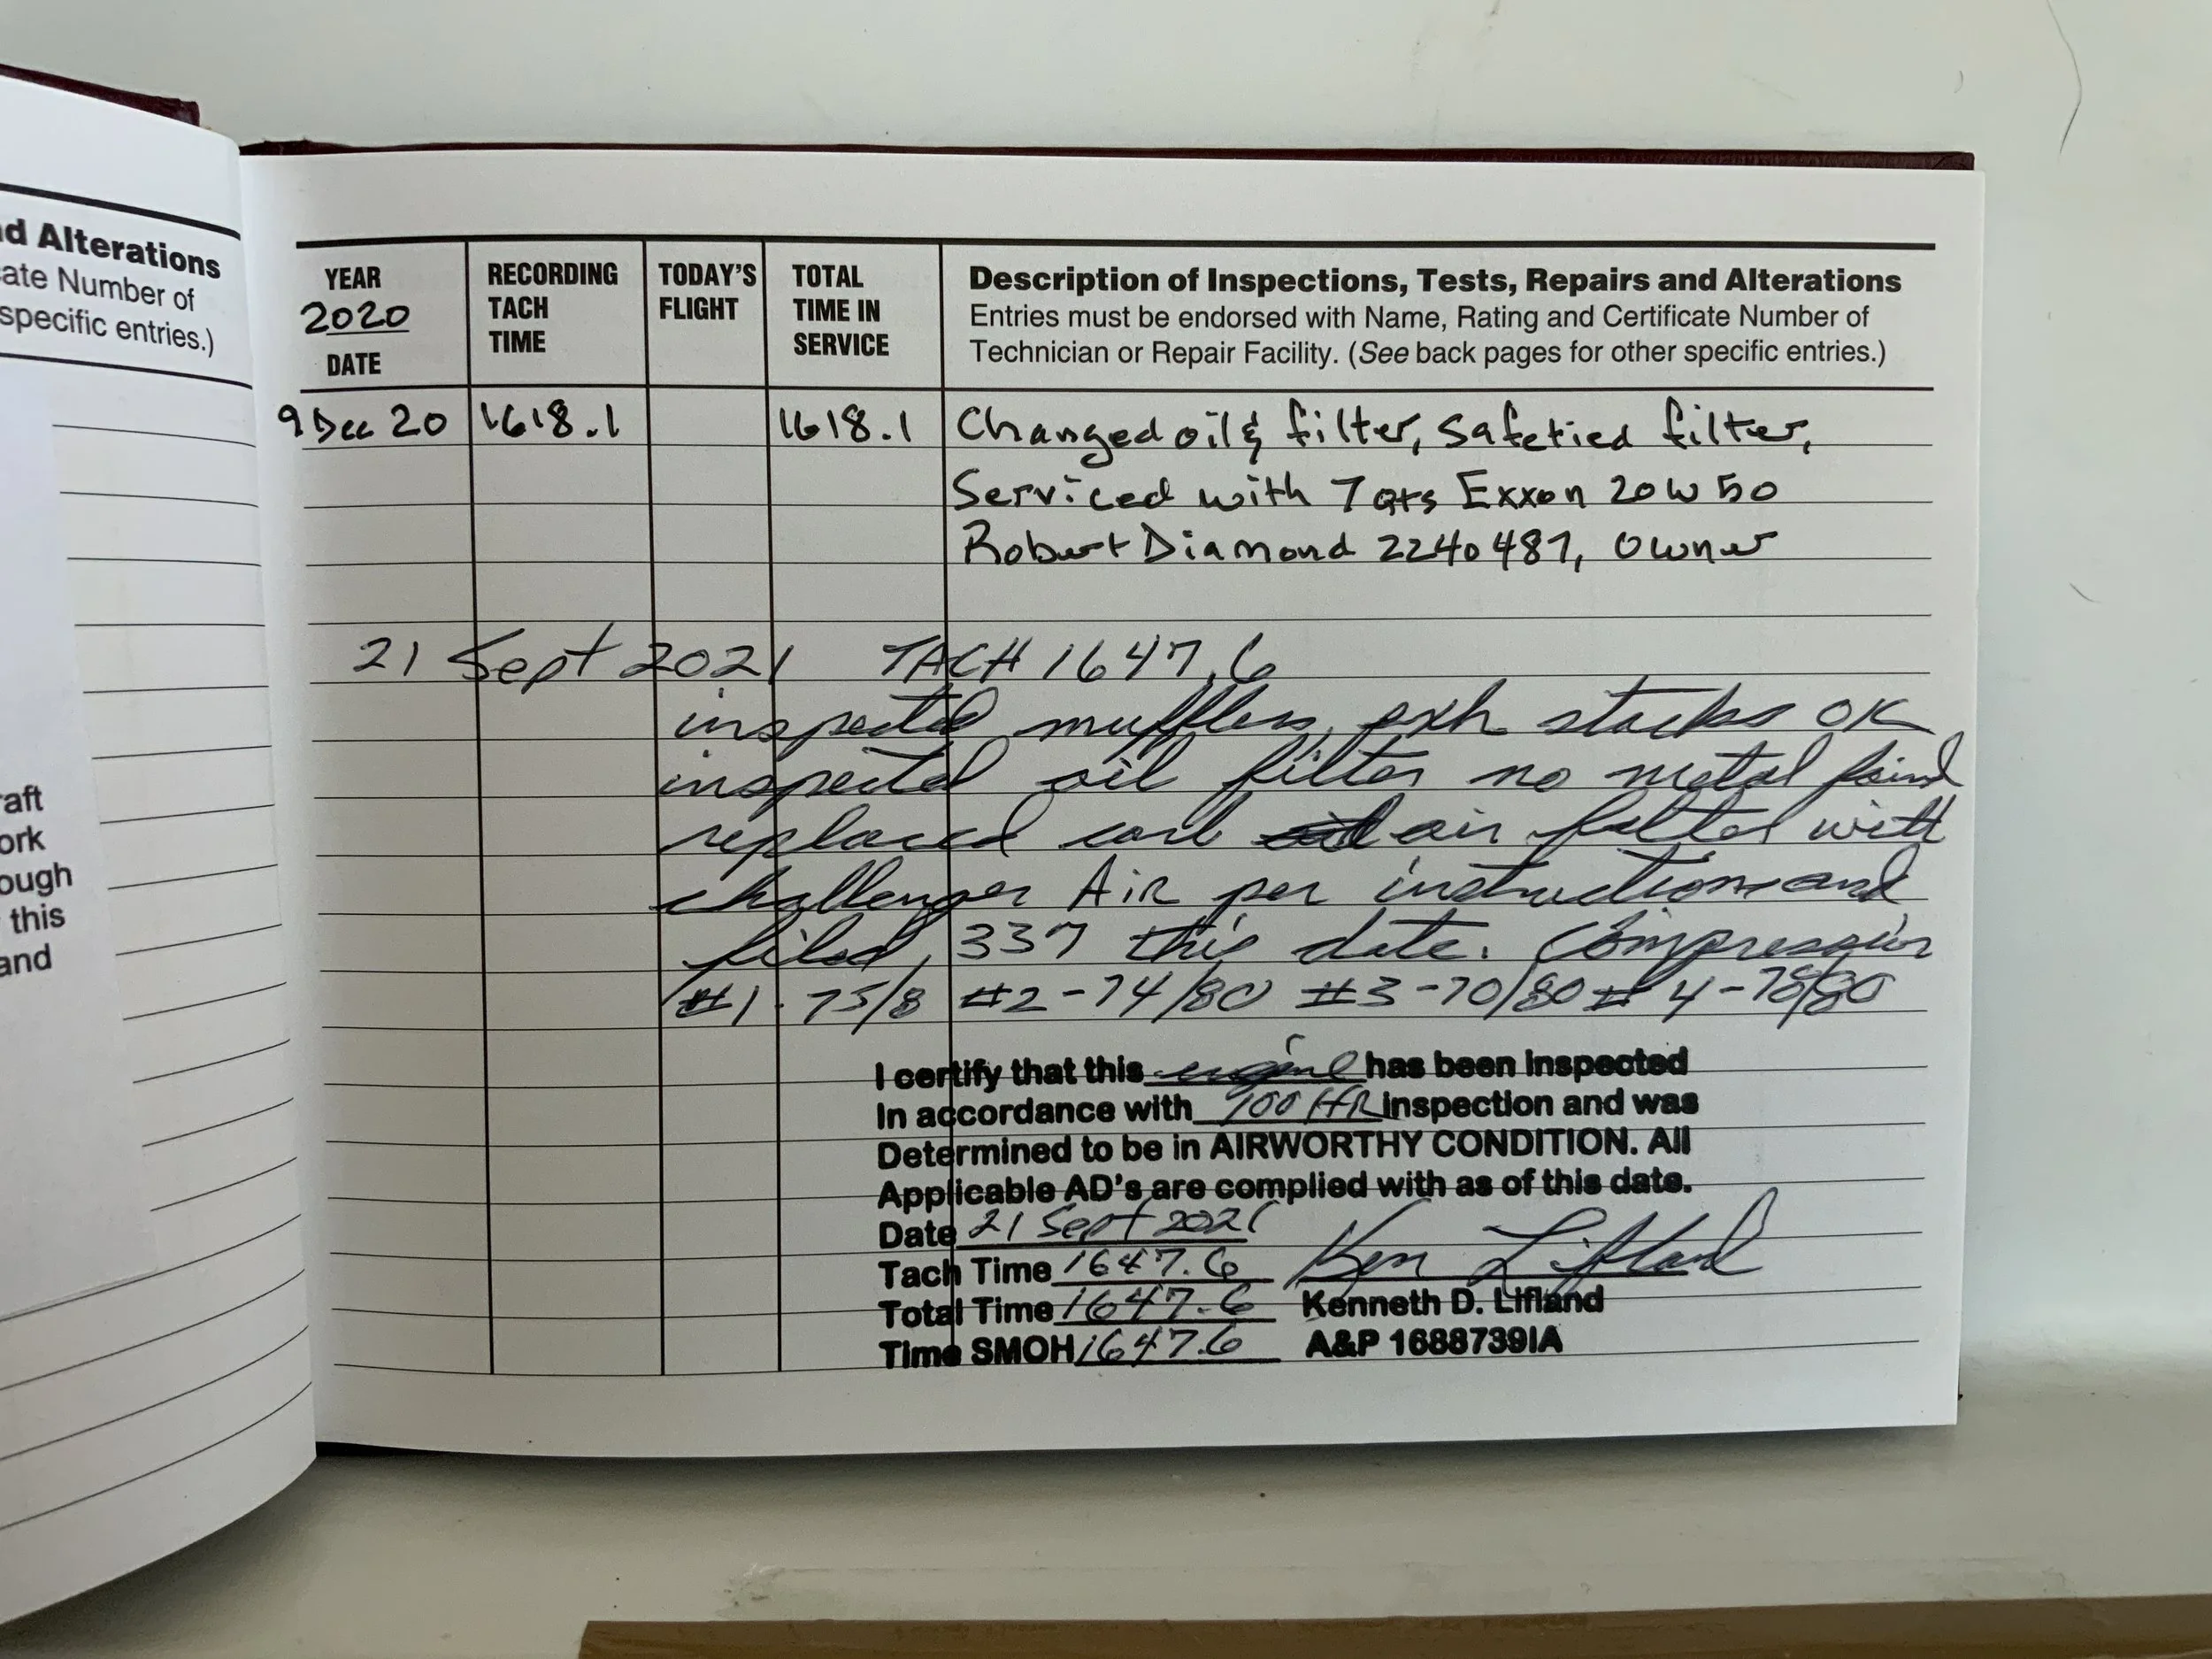 d Alterations
ate Number of
specific entries.)
raft
ork
ough
this
and
YEAR
2020
DATE
RECORDING
TACH
TIME
TODAY'S
FLIGHT
TOTAL
TIME IN
SERVICE
Description of Inspections, Tests, Repairs and Alterations
Entries must be endorsed with Name, Rating and Certificate Number of
Technician or Repair Facility. (See back pages for other specific entries.)
9 Dec 20 1618.1 1618.1 Changed oil & filter, Safetied filter,
Serviced with 7 qts Exxon 20W50
Robert Diamond 2240487, Owner
21 Sept 2021 TACH 1647.6
inspected mufflers, exh stacks OK
inspected oil filter no metal found
replaced carb air filter with
challenger AiR per instructions and
filed 337 this date. Compression
#1-75/8 #2-74/80 #3-70/80 # 4-78/80
I certify that this engine has been Inspected
In accordance with 100 HR Inspection and was
Determined to be in AIRWORTHY CONDITION. All
Applicable AD's are complied with as of this date.
Date 21 Sept 2021
Tach Time 1647.6 Ken Lifland
Total Time 1647.6 Kenneth D. Lifland
Time SMOH 1647.6 A&P 1688739IA